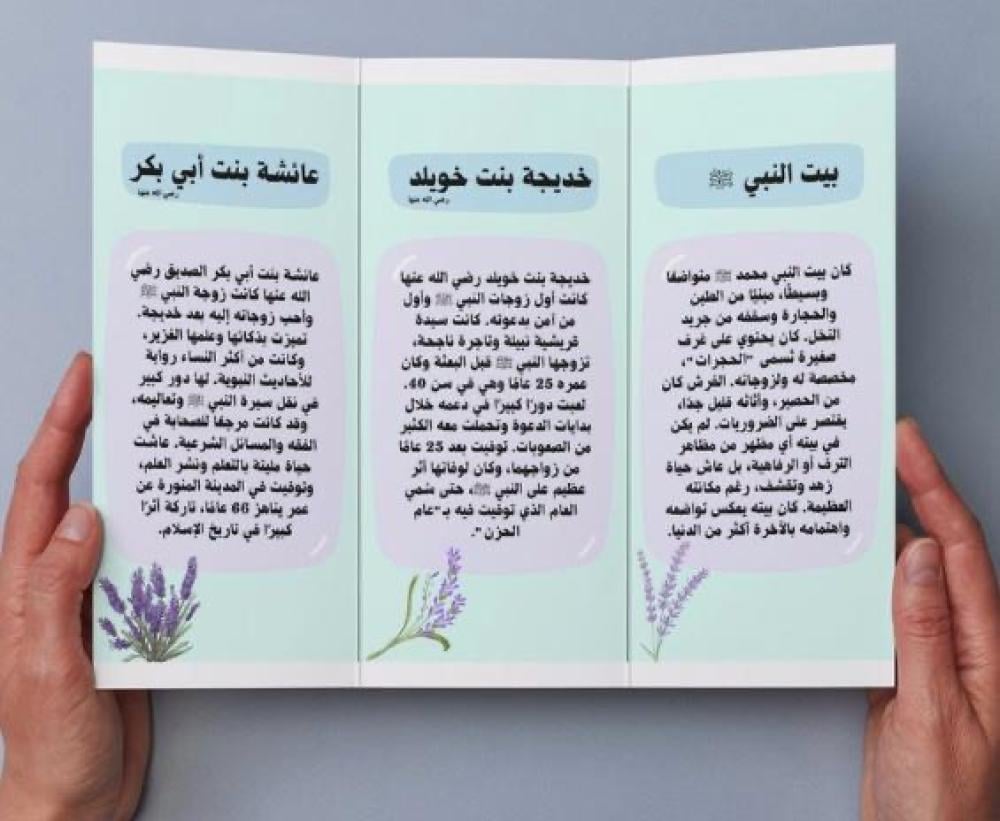 بيت النبي ﷺ
كان بيت النبي محمد ﷺ متواضعًا
وبسيطًا، مبنيًا من الطين
والحجارة وسقفه من جريد
النخل. كان يحتوي على غرف
صغيرة تُسمى "الحجرات"،
مخصصة له ولزوجاته. الفرش كان
من الحصير، وأثاثه قليل جدًا،
يقتصر على الضروريات. لم يكن
في بيته أي مظهر من مظاهر
الترف أو الرفاهية، بل عاش حياة
زهد وتقشف، رغم مكانته
العظيمة. كان بيته يعكس تواضعه
واهتمامه بالآخرة أكثر من الدنيا.
خديجة بنت خويلد
رضي الله عنها
خديجة بنت خويلد رضي الله عنها
كانت أول زوجات النبي ﷺ وأول
من آمن بدعوته. كانت سيدة
قريشية نبيلة وتاجرة ناجحة،
تزوجها النبي ﷺ قبل البعثة وكان
عمره 25 عامًا وهي في سن 40.
لعبت دورًا كبيرًا في دعمه خلال
بدايات الدعوة وتحملت معه الكثير
من الصعوبات. توفيت بعد 25 عامًا
من زواجهما، وكان لوفاتها أثر
عظيم على النبي ﷺ، حتى سُمي
العام الذي توفيت فيه بـ "عام
الحزن".
عائشة بنت أبي بكر
رضي الله عنها
عائشة بنت أبي بكر الصديق رضي
الله عنها كانت زوجة النبي ﷺ
وأحب زوجاته إليه بعد خديجة.
تميزت بذكائها وعلمها الغزير،
وكانت من أكثر النساء رواية
للأحاديث النبوية. لها دور كبير
في نقل سيرة النبي ﷺ وتعاليمه،
وقد كانت مرجعًا للصحابة في
الفقه والمسائل الشرعية. عاشت
حياة مليئة بالتعلم ونشر العلم،
وتوفيت في المدينة المنورة عن
عمر يناهز 66 عامًا، تاركة أثرًا
كبيرًا في تاريخ الإسلام.